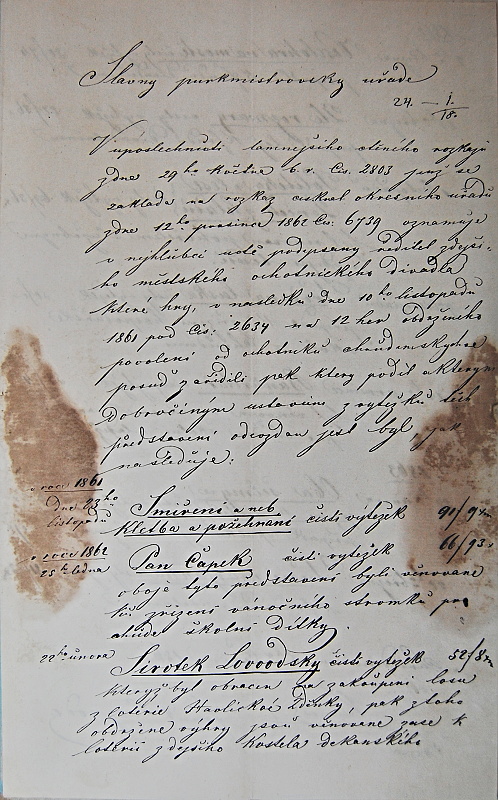 Slavny purkmistrovsky uřade
24. — 1./18.
V uposlechnutí tamnejšiho cteného rozkazu
zdne 29ho Května b. r. čis. 2803 jenž se
zaklada na rozkaz cis. kral okresniho uřadu
zdne 12ho prosince 1862 čis. 6739 oznamuje
v nejhlubší uctě podepsany ředitel zdejší-
ho městského ochotnického divadla
které hry, v nasledku dne 10ho listopadu
1861 pod čis: 2634 na 12 her obdrženého
povolení od ochotníku chrudimskych se
posud zařidili pak ktery podil a kterym
Dobročiným ustavum z vytěžku těch
představení odevzdan jest byl, jak
nasleduje:
v roce 1861
Dne 23ho listopadu
Smíření a neb
Kletba a požehnaní čisti vytežek 91/94
v roce 1862
25ho ledna
Pan Čapek čisti vytežek 66/93
oboje tyto představení byli věnované
ku zřizení vánočního stromku pro
chudé školní dítky.
22ho února
Sirotek Lovoodsky čisti vytěžek 52/8
kteryž byl obracen na zakoupení losu
z loterie Havlickoi Zdinky, pak z toho
obdržene výhry jsou věnované zase k
loterii zdejšiho Kostela dekanského